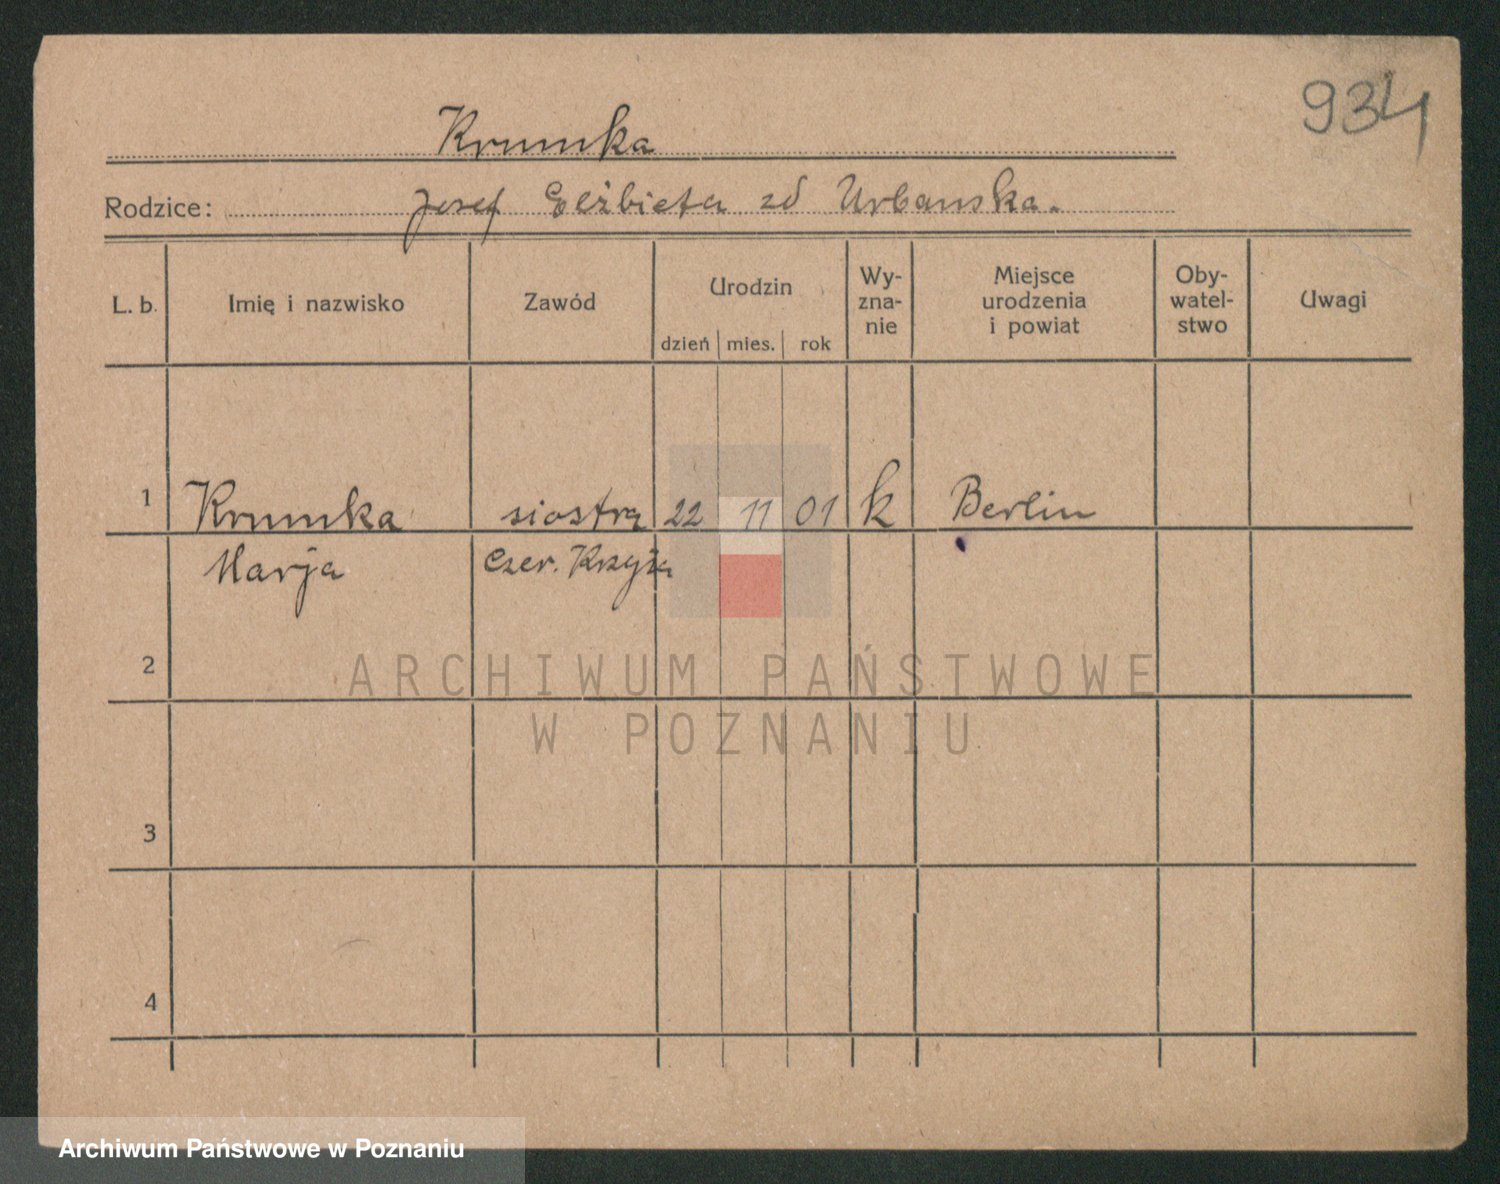 934
Krumka
Rodzice: Josef Elżbieta zd Urbanska.
L. b. Imię i nazwisko Zawód Urodzin dzień mies. rok Wy- zna- nie Miejsce urodzenia i powiat Oby- watel- stwo Uwagi
1 Krumka siostra 22 11 01 k Berlin
Marja Czer. Krzyża
2
ARCHIWUM PAŃSTWOWE
W POZNANIU
3
4
Archiwum Państwowe w Poznaniu